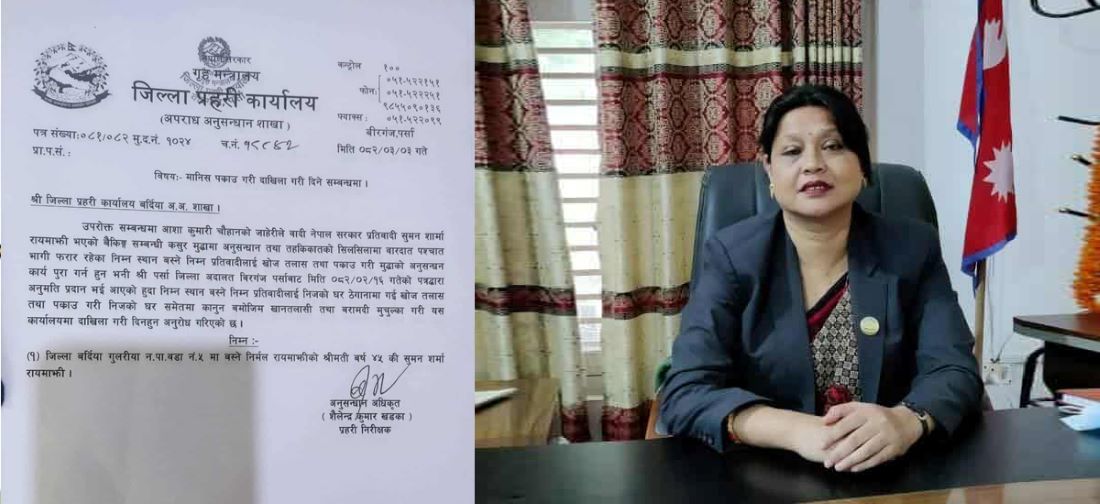 नेपाल सरकार
गृह मन्त्रालय
जिल्ला प्रहरी कार्यालय
(अपराध अनुसन्धान शाखा)
कन्ट्रोल १००
फोन: ०५१-५२२१५१
०५१-५२२२५१
९८५५०९०१३६
फ्याक्स : ०५१-५२२०९९
वीरगंज,पर्सा
पत्र संख्या:०८१/०८२ मु.द.नं. १०२४ च.नं.
मिति ०८२/०३/०३ गते
प्रा.प.सं.:
विषय:- मानिस पकाउ गरी दाखिला गरी दिने सम्बन्धमा ।
श्री जिल्ला प्रहरी कार्यालय बर्दिया अ.अ. शाखा ।
उपरोक्त सम्बन्धमा आशा कुमारी चौहानको जाहेरीले वादी नेपाल सरकार प्रतिवादी सुमन शर्मा
रायमाझी भएको बैकिङ्ग सम्बन्धी कसुर मुद्धामा अनुसन्धान तथा तहकिकातको सिलसिलामा वारदात पश्चात
भागी फरार रहेका निम्न स्थान बस्ने निम्न प्रतिवादीलाई खोज तलास तथा पकाउ गरी मुद्धाको अनुसन्धान
कार्य पुरा गर्न हुन भनी श्री पर्सा जिल्ला अदालत बिरगंज पर्साबाट मिति ०८२/०२/१६ गतेको पत्रद्धारा
अनुमति प्रदान भई आएको हुदा निम्न स्थान बस्ने निम्न प्रतिवादीलाई निजको घर ठेगानामा गई खोज तलास
तथा पकाउ गरी निजको घर समेतमा कानून बमोजिम खानतलासी तथा बरामदी मुचुल्का गरी यस
कार्यालयमा दाखिला गरी दिनहुन अनुरोध गरिएको छ ।
निम्न :-
(१) जिल्ला बर्दिया गुलरीया न.पा.वडा नं.५ मा बस्ने निर्मल रायमाझीको श्रीमती बर्ष ४५ की सुमन शर्मा
रायमाझी ।
अनुसन्धान अधिकृत
( शैलेन्द्र कुमार खडका )
प्रहरी निरीक्षक